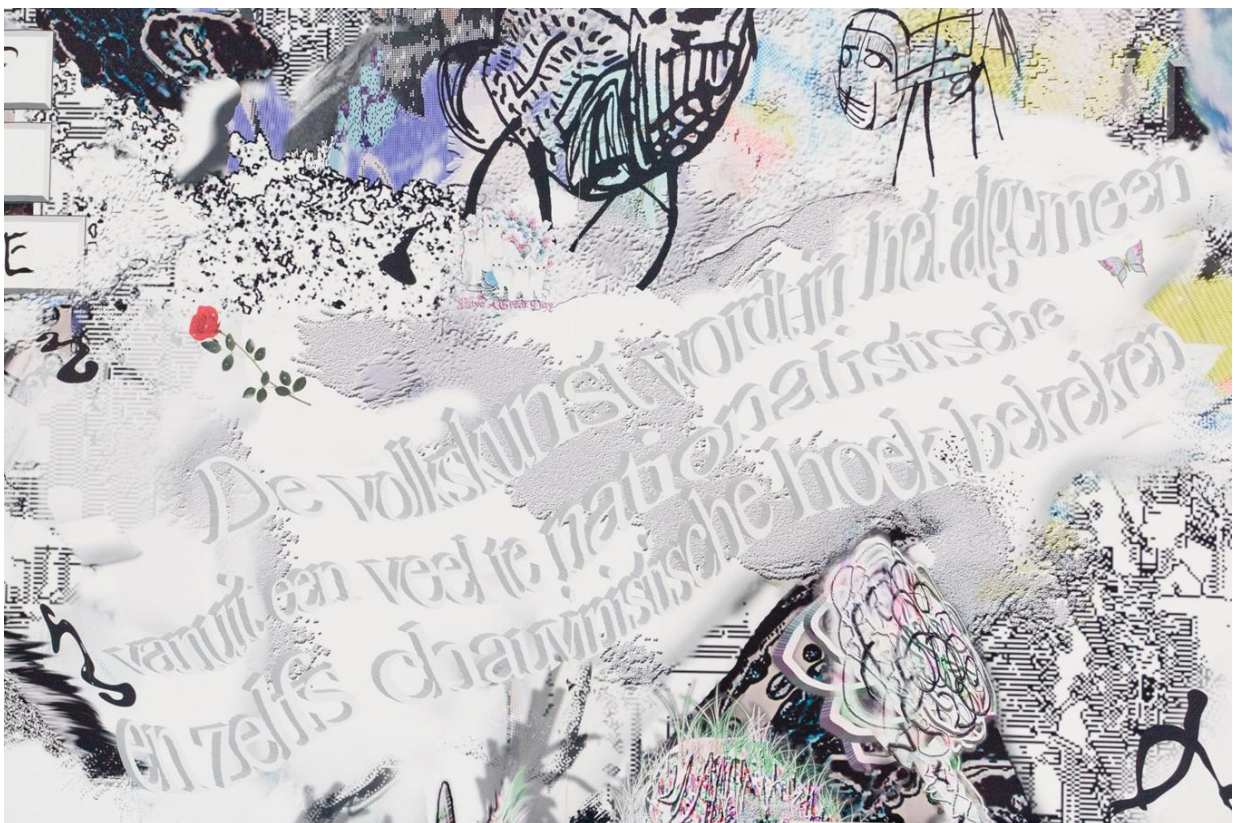 E
Have A Great Day
De volkskunst wordt in het algemeen
vanuit een veel te nationalistische
en zelfs chauvinistische hoek bekeken